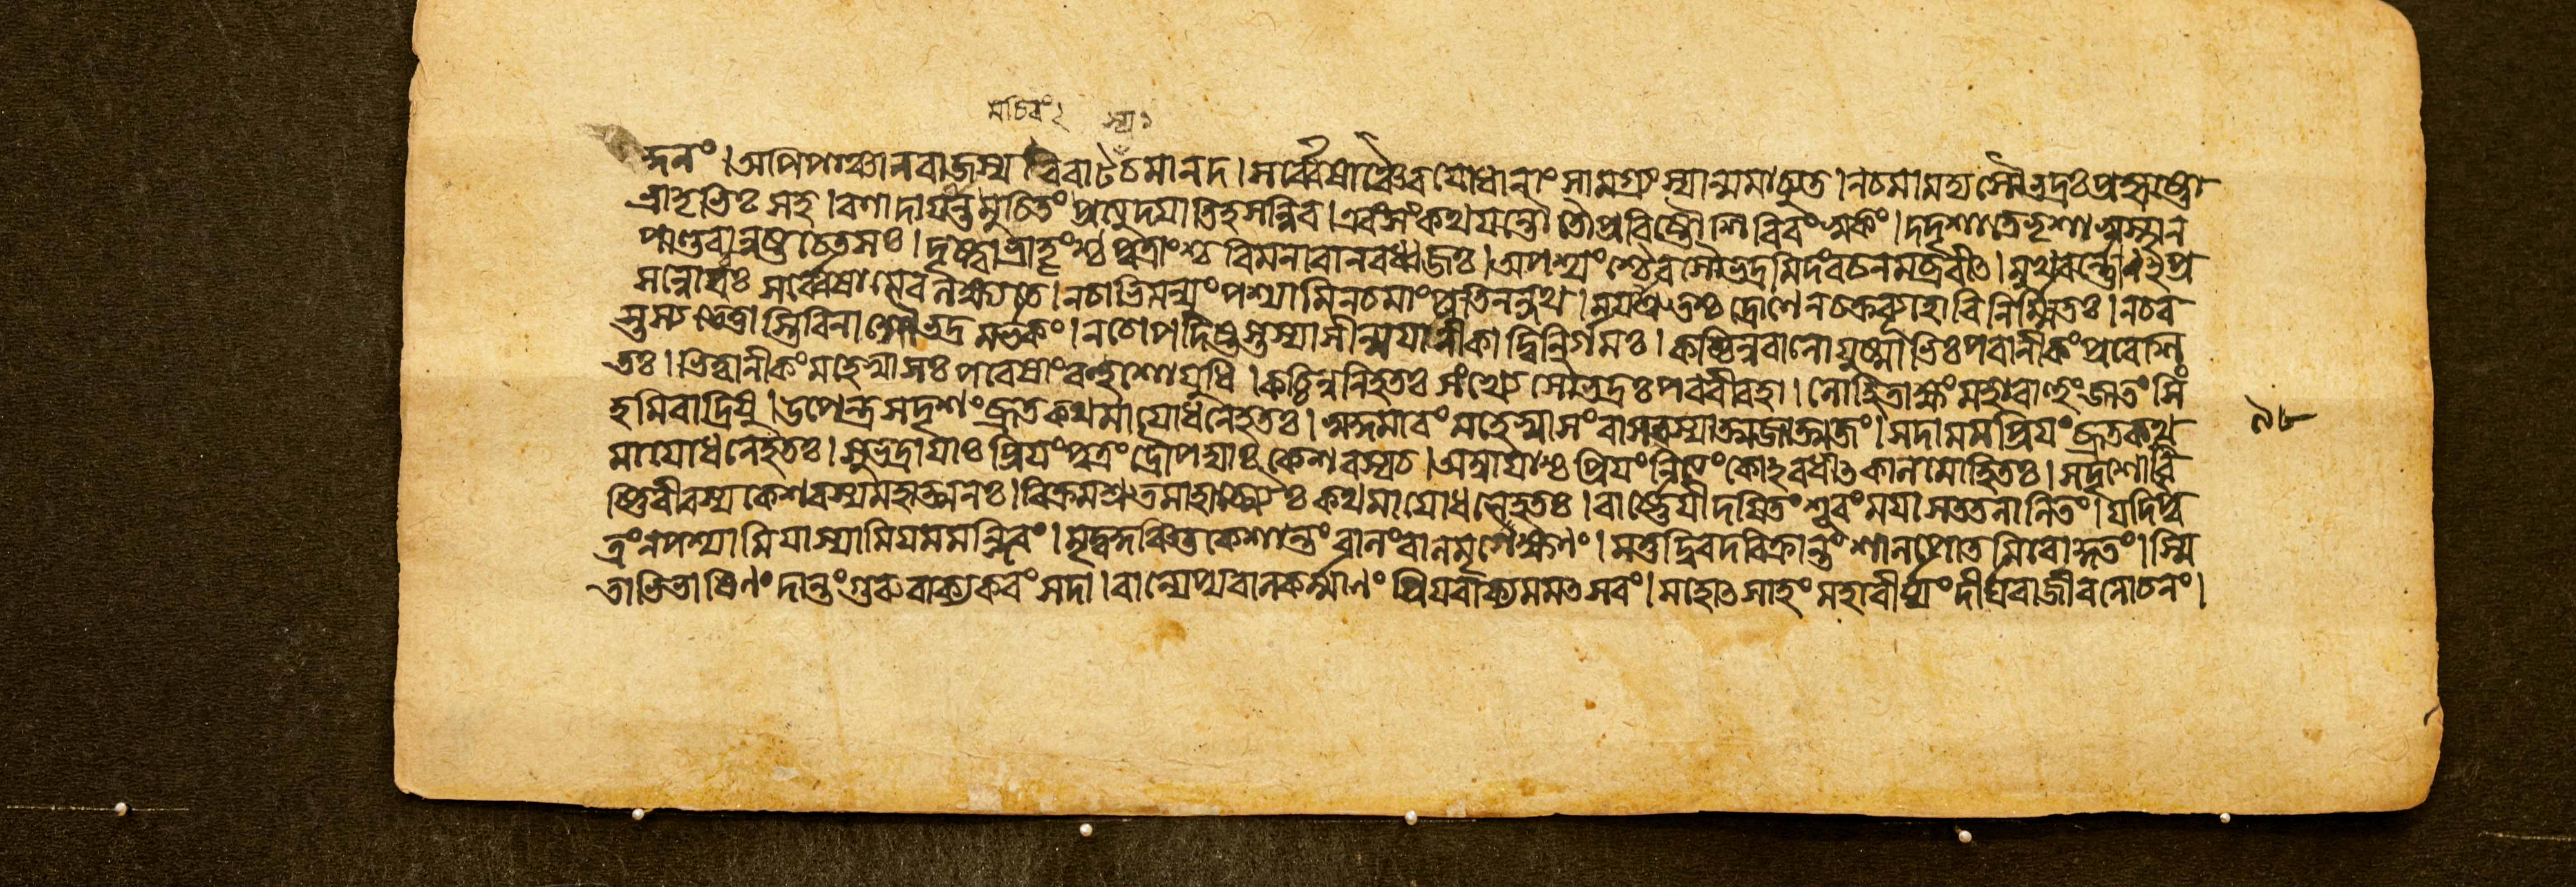 মচিরং২ স্য১
ন্দনং। অপিপঞ্চালরাজস্য বিরাটচমানদ। সর্ব্বেষাঞ্চৈবযোধানাং সামগ্র্যং স্যান্মমাচ্যুত। নচমামদ্য সৌভদ্রঃ প্রহৃষ্টো
ভ্রাতৃভিঃ সহ। রণাদায়ান্তমুচিতং প্রত্যুদয়াতিহসন্নিব। এবংসংকথয়ন্তৌ তৌপ্রবিষ্টৌ শিবিরং স্বকং। দদৃশাতেভৃশাস্বস্থান
পাণ্ডবান্নষ্টচেতসঃ। দৃষ্ট্বাভ্রাতৄংশ্চ পুত্রাংশ্চ বিমনাবানরধ্বজঃ। অপশ্যংশ্চৈবসৌভদ্রমিদংবচনমব্রবীৎ। মুখবর্ণ্ণো প্র
সন্নোবঃ সর্ব্বেষামেব লক্ষ্যতে। নচাভিমন্যুংপশ্যামিনচমাংপ্রতিনন্দথ। দ্রোণেনচক্রব্যূহোবিনির্ম্মিতঃ। নচব
স্তস্য ভেত্তাস্তিবিনা সৌভদ্রমর্ভকং। নচোপদিষ্টস্তস্যাসীন্ময়ানীকাদ্বিনির্গমঃ। কচ্চিন্নবালোযুষ্মাভিঃপরানীকংপ্রবেশি
তঃ। ভিত্ত্বানীকংমহেষ্বাসঃ পরেষাংবহুশোযুধি। কচ্চিন্ননিহতঃ সংখ্যে সৌভদ্রঃ পরবীরহা। লোহিতাক্ষংমহাবাহুংজাতং সিং
হমিবাদ্রিষু। উপেন্দ্রসদৃশংব্রূতকথমায়োধনেহতঃ। মহেষ্বাসং বাসবস্যাত্মজাত্মজং। সদামমপ্রিয়ংব্রূতকথ
মায়োধনেহতঃ। সুভদ্রায়াঃ প্রিয়ংপুত্রং দ্রৌপদ্যাঃ কেশবস্যচ। অম্বায়াশ্চ প্রিয়ংনিত্যং কোঽবধীৎকালমোহিতঃ। সদৃশোবৃ
ষ্ণিবীরস্য কেশবস্যমহাত্মনঃ। বিক্রমশ্রুতমাহাত্ম্যৈঃ কথমায়োধনেহতঃ। বার্ষ্ণেয়ীদয়িতং শূরংময়াসততলালিতং। যদিপু
ত্রংনপশ্যামিযাস্যামিযমমন্দিরং। মৃদ্বকুঞ্চিতকেশান্তং বালংবালমৃগেক্ষণং। মত্তদ্বিরদবিক্রান্তং শালপোতমিবোদ্গতং। স্মি
তাভিভাষিণং দান্তংগুরুবাক্যকরংসদা। বাল্যেপ্যবালকর্ম্মাণং প্রিয়বাক্যমমৎসরং। মহোৎসাহং মহাবীর্য্যং দীর্ঘরাজীবলোচনং।
৯৮